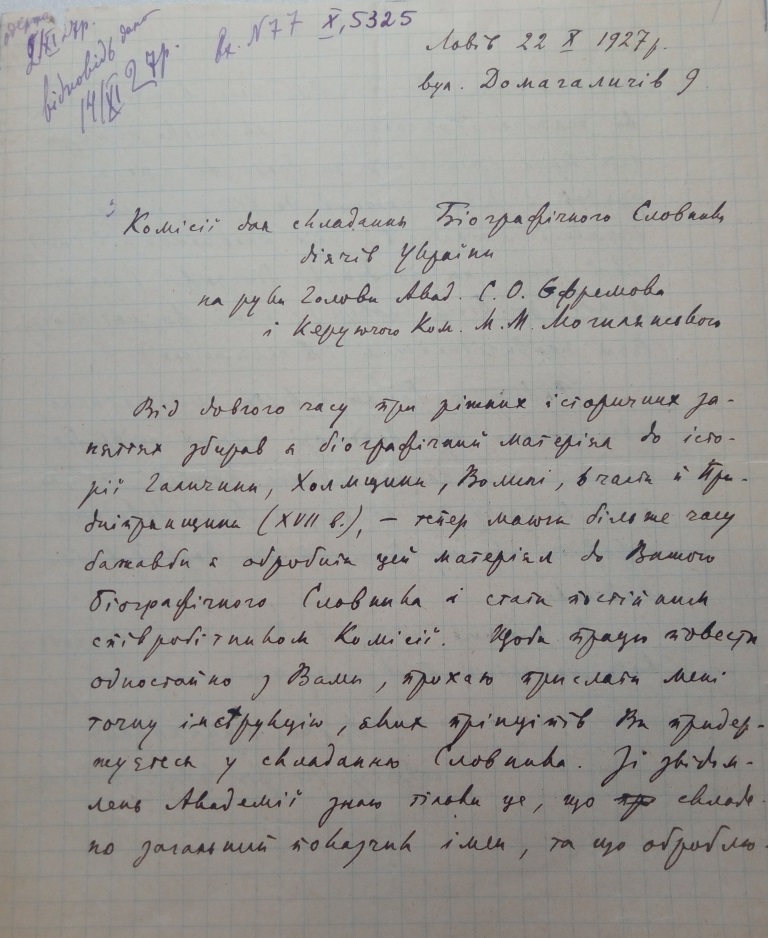 одерж.
2/XI 27р.
відповідь дано
14/XI 27р.
вх. N77 X, 5325
Львів 22 X 1927 р.
вул. Домагаличів 9
Комісії для складання Біографічного Словника
діячів України
на руки Голови Акад. С. О. Єфремова
і Керуючого Ком. М. М. Могилянського
Від довгого часу при ріжних історичних за-
няттях збирав я біографічний матеріял до істо-
рії Галичини, Холмщини, Волині, в части й При-
дніпрянщини (XVII в.), – тепер маючи більше часу
бажавби я обробити цей матеріял до Вашого
Біографічного Словника і стати постійним
співробітником Комісії. Щоби працю повести
одностайно з Вами, прохаю прислати мені
точну інструкцію, яких прінціпів Ви придер-
жуєтеся у складанню Словника. Зі звідом-
лень Академії знаю тільки це, що складе-
но загальний показчик імен, та що оброблю-